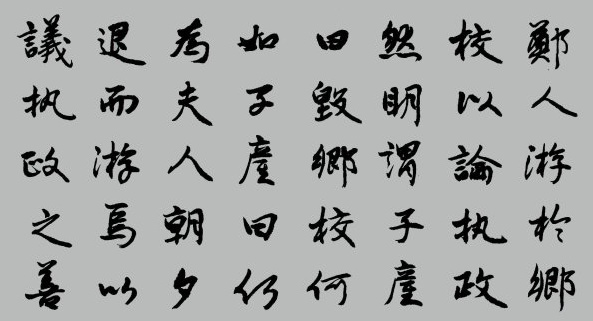 鄭人游於鄉
校以論执政
然明謂子產
曰毀鄉校何
如子產曰何
為夫人朝夕
退而游焉以
議执政之善